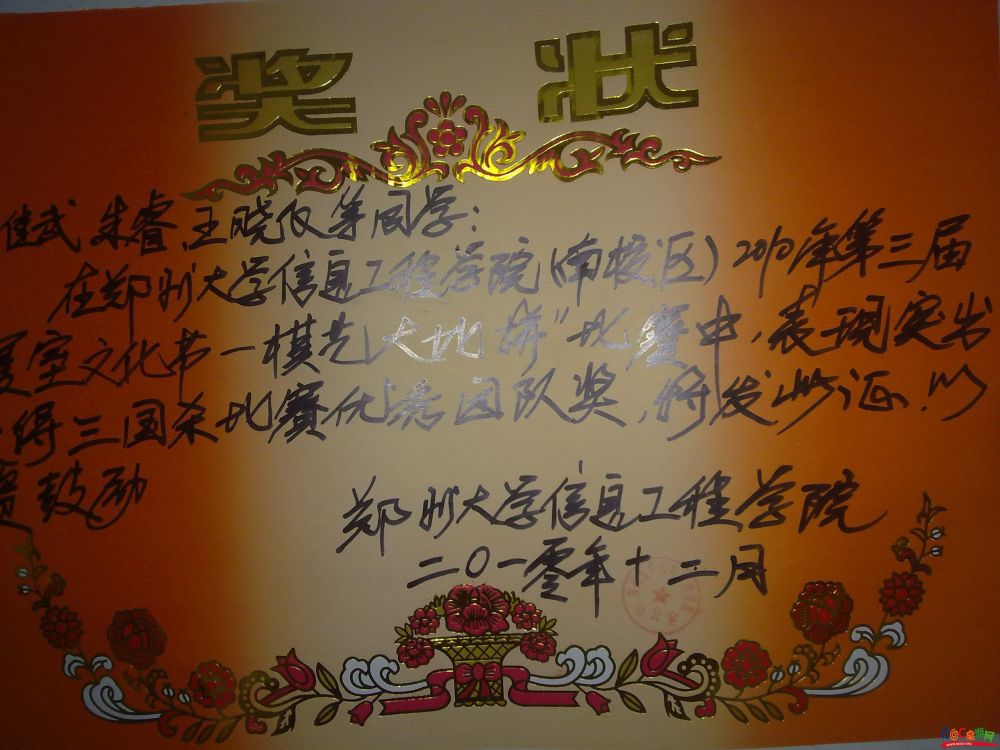 奖状
佳武 朱睿 王晓仪等同学:
在郑州大学信息工程学院(南校区)2010年第三届
寝室文化节一棋艺"大比拼"比赛中,表现突出
得三国杀比赛优秀团队奖,特发此证.以
资鼓励
郑州大学信息工程学院
二〇一零年十二月
桌游网